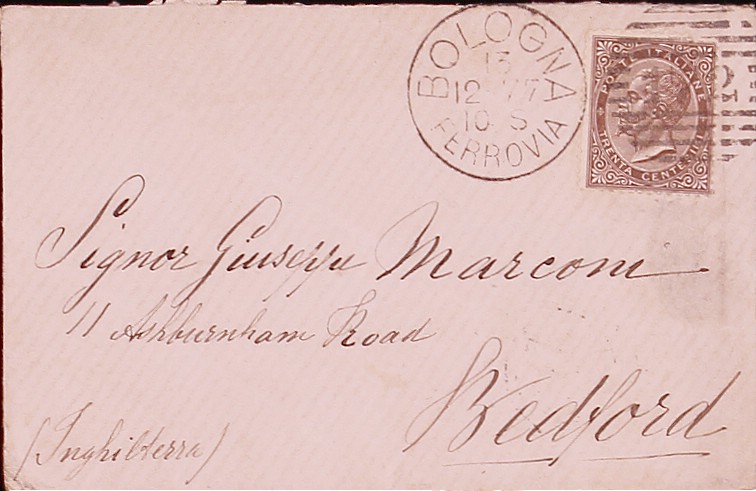 BOLOGNA
13
12 77
10 S
FERROVIA
POSTE ITALIANE
TRENTA CENTESIMI
Signor Giuseppe Marconi
11 Ashburnham Road
Bedford
(Inghilterra)